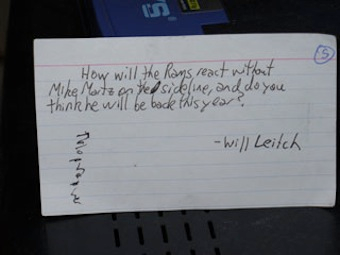 5
How will the Rams react without
Mike Martz on the sideline, and do you
think he will be back this year?
-Will Leitch